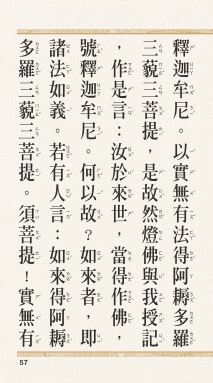 釋迦牟尼。以實無有法得阿耨多羅
三藐三菩提，是故然燈佛與我授記
，作是言：汝於來世，當得作佛，
號釋迦牟尼。何以故？如來者，即
諸法如義。若有人言：如來得阿耨
多羅三藐三菩提。須菩提！實無有
57